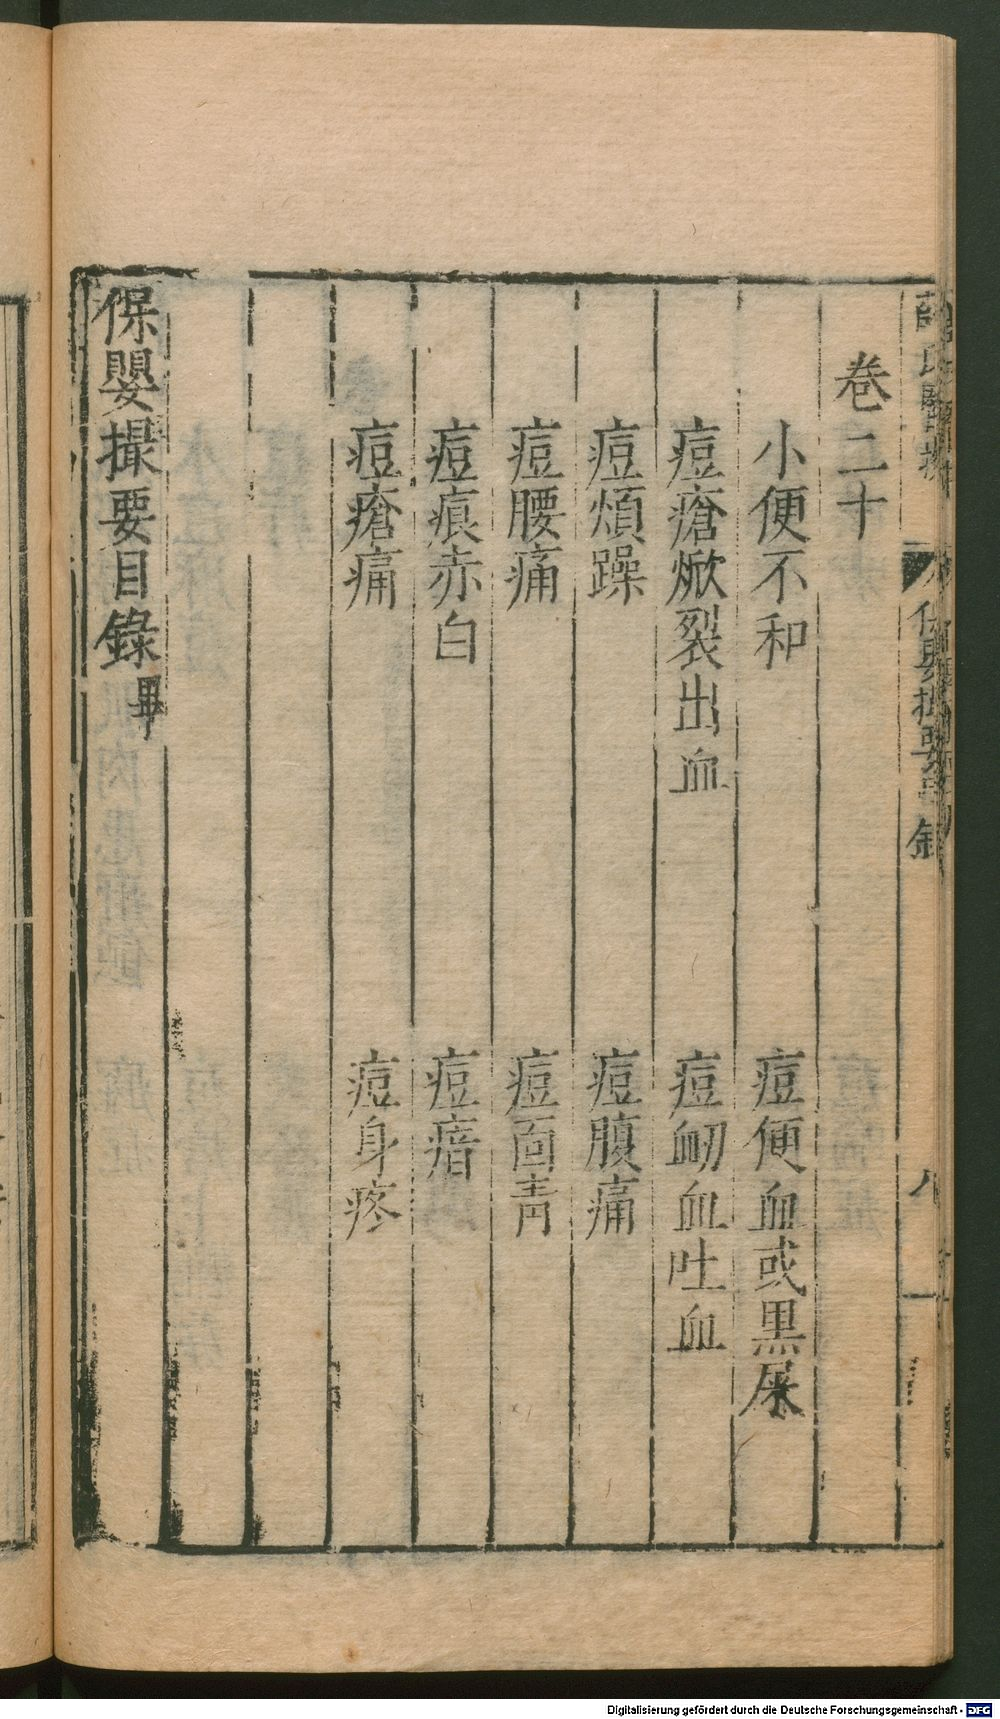 卷二十
小便不和 痘便血或黒屎
痘瘡焮裂出血 痘衂血吐血
痘煩躁 痘腹痛
痘腰痛 痘面青
痘痕赤白 痘瘖
痘瘡痛 痘身疼
保嬰撮要目錄畢
保嬰撮要目錄
八
Digitalisierung gefördert durch die Deutsche Forschungsgemeinschaft - DFG